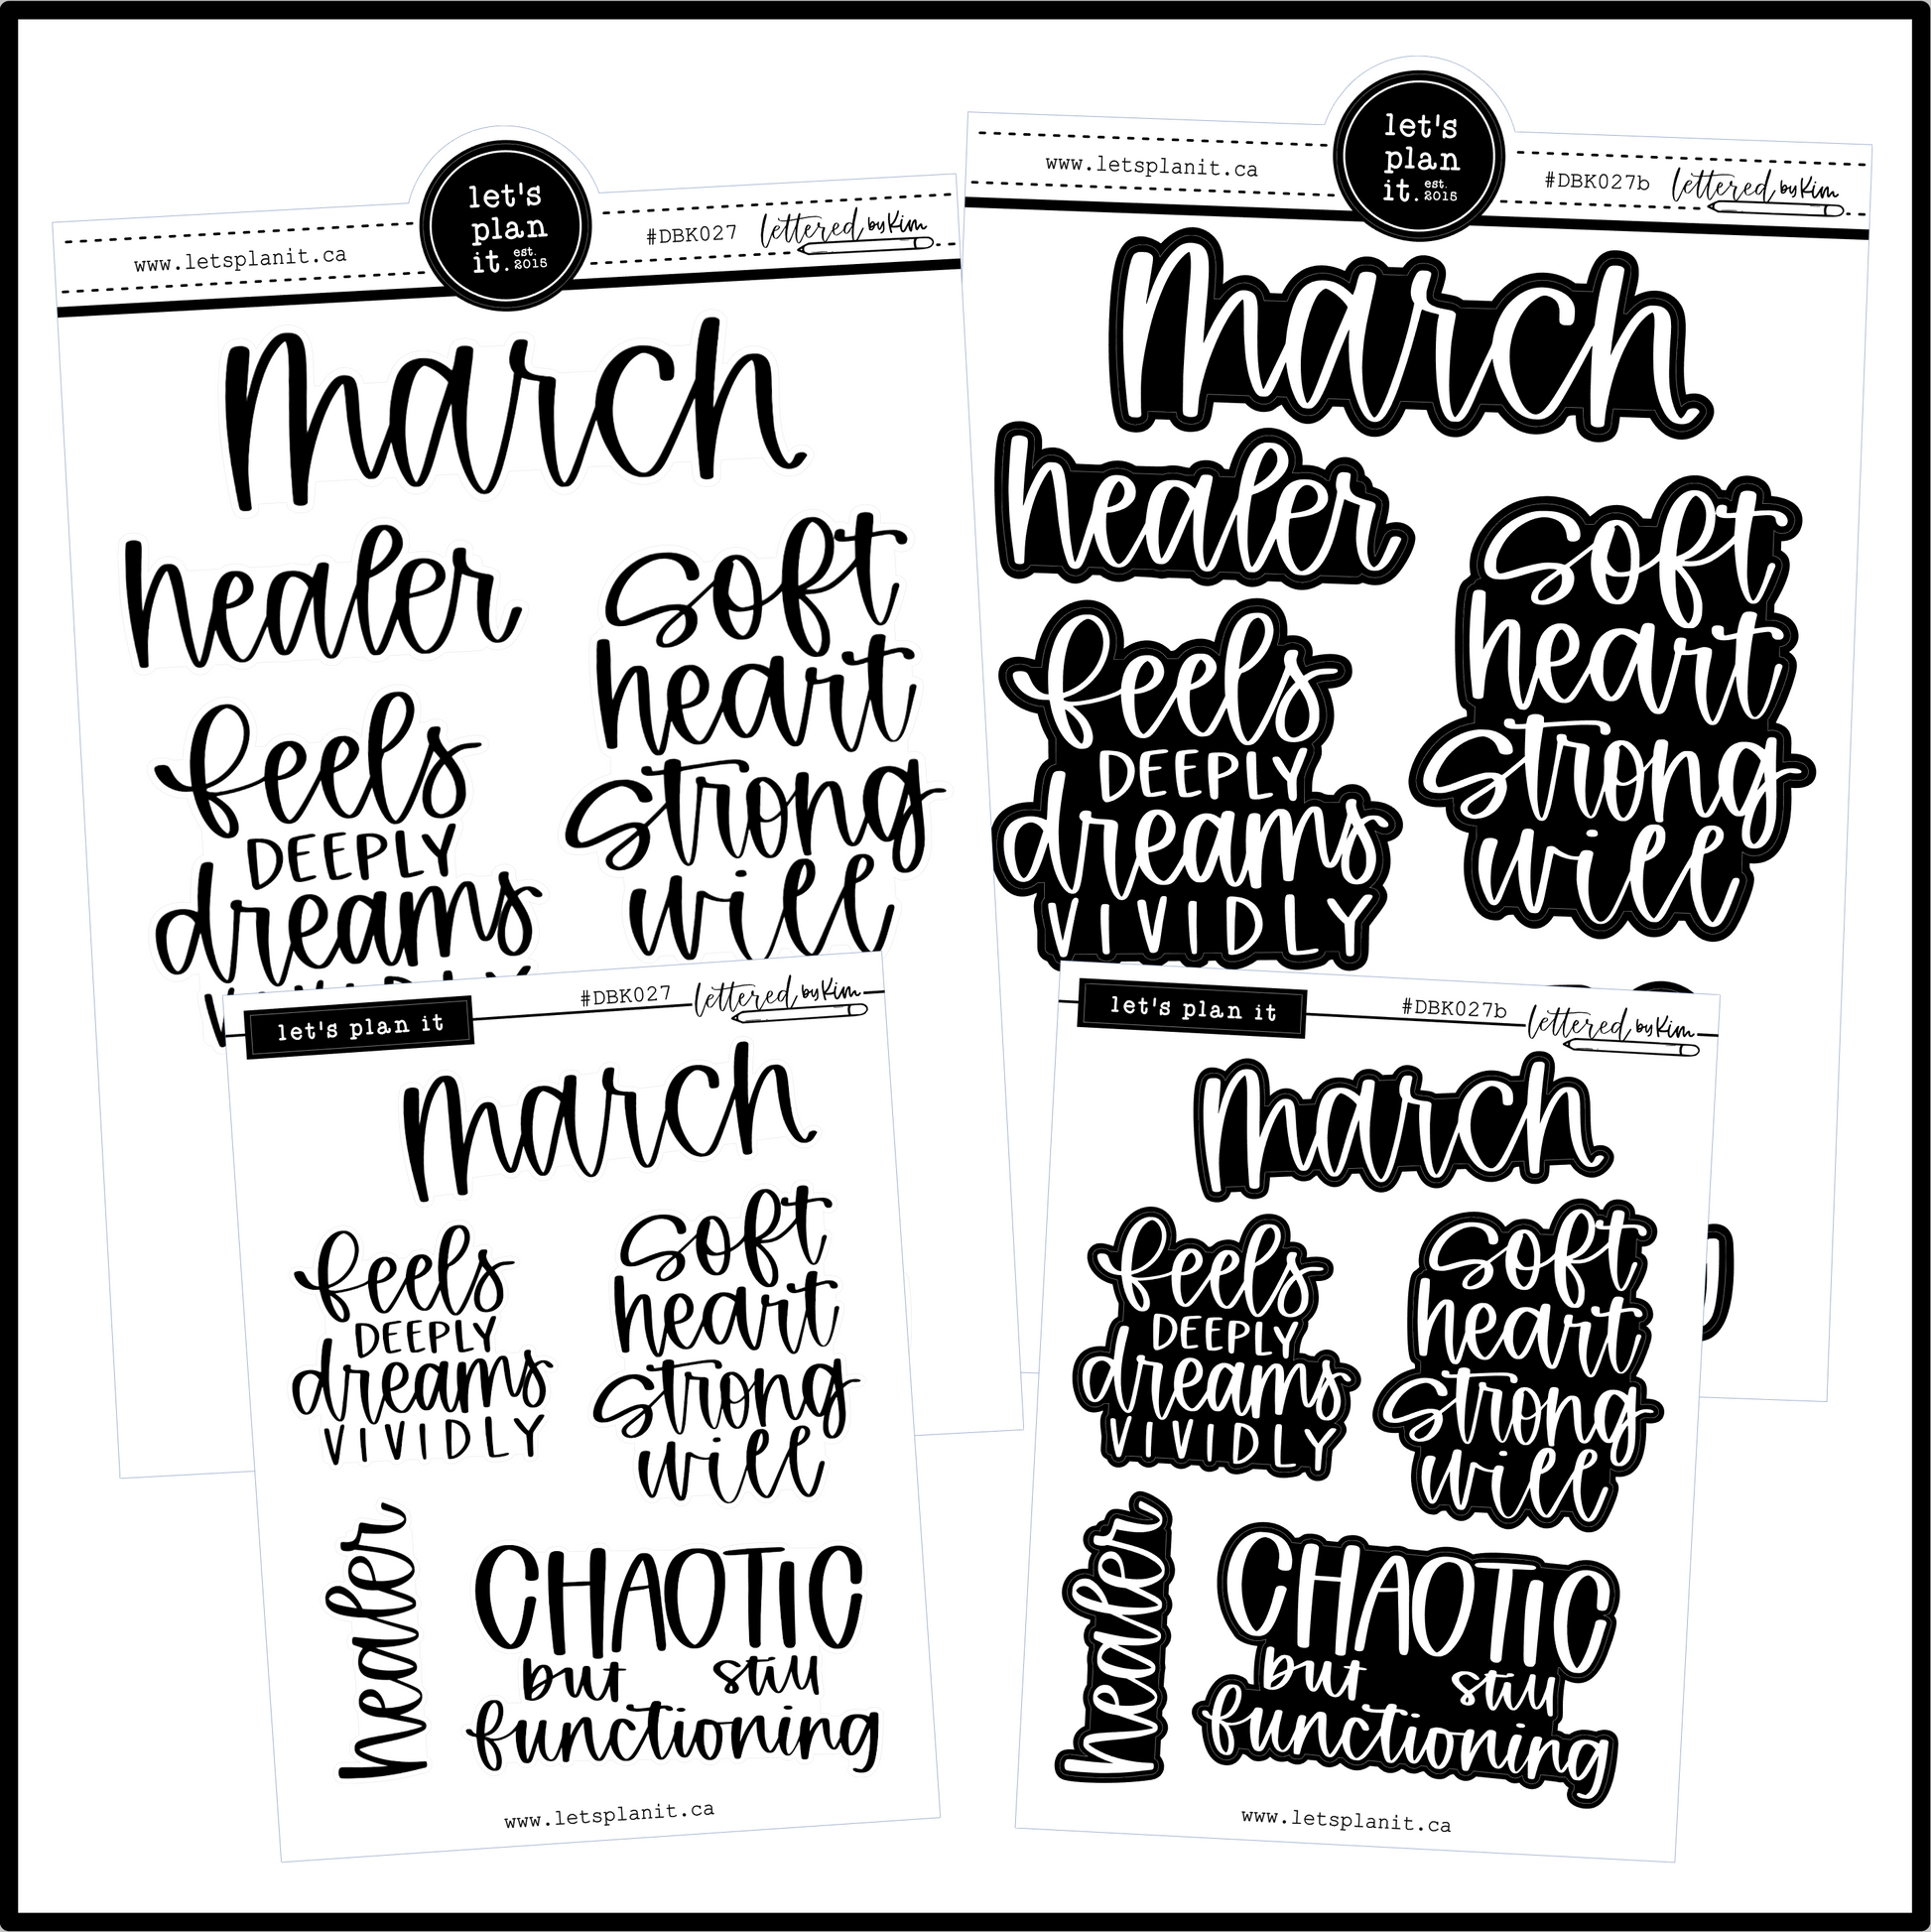 let's
plan
it. est. 2015
www.letsplanit.ca
#DBK027 lettered by Kim
March
healer
feels
DEEPLY
dreams
VIVIDLY
soft
heart
strong
will
let's
plan
it. est. 2015
www.letsplanit.ca
#DBK027b lettered by Kim
March
healer
feels
DEEPLY
dreams
VIVIDLY
soft
heart
strong
will
let's plan it
#DBK027 lettered by Kim
March
feels
DEEPLY
dreams
VIVIDLY
soft
heart
strong
will
healer
CHAOTIC
but still
functioning
www.letsplanit.ca
let's plan it
#DBK027b lettered by Kim
March
feels
DEEPLY
dreams
VIVIDLY
soft
heart
strong
will
healer
CHAOTIC
but still
functioning
www.letsplanit.ca